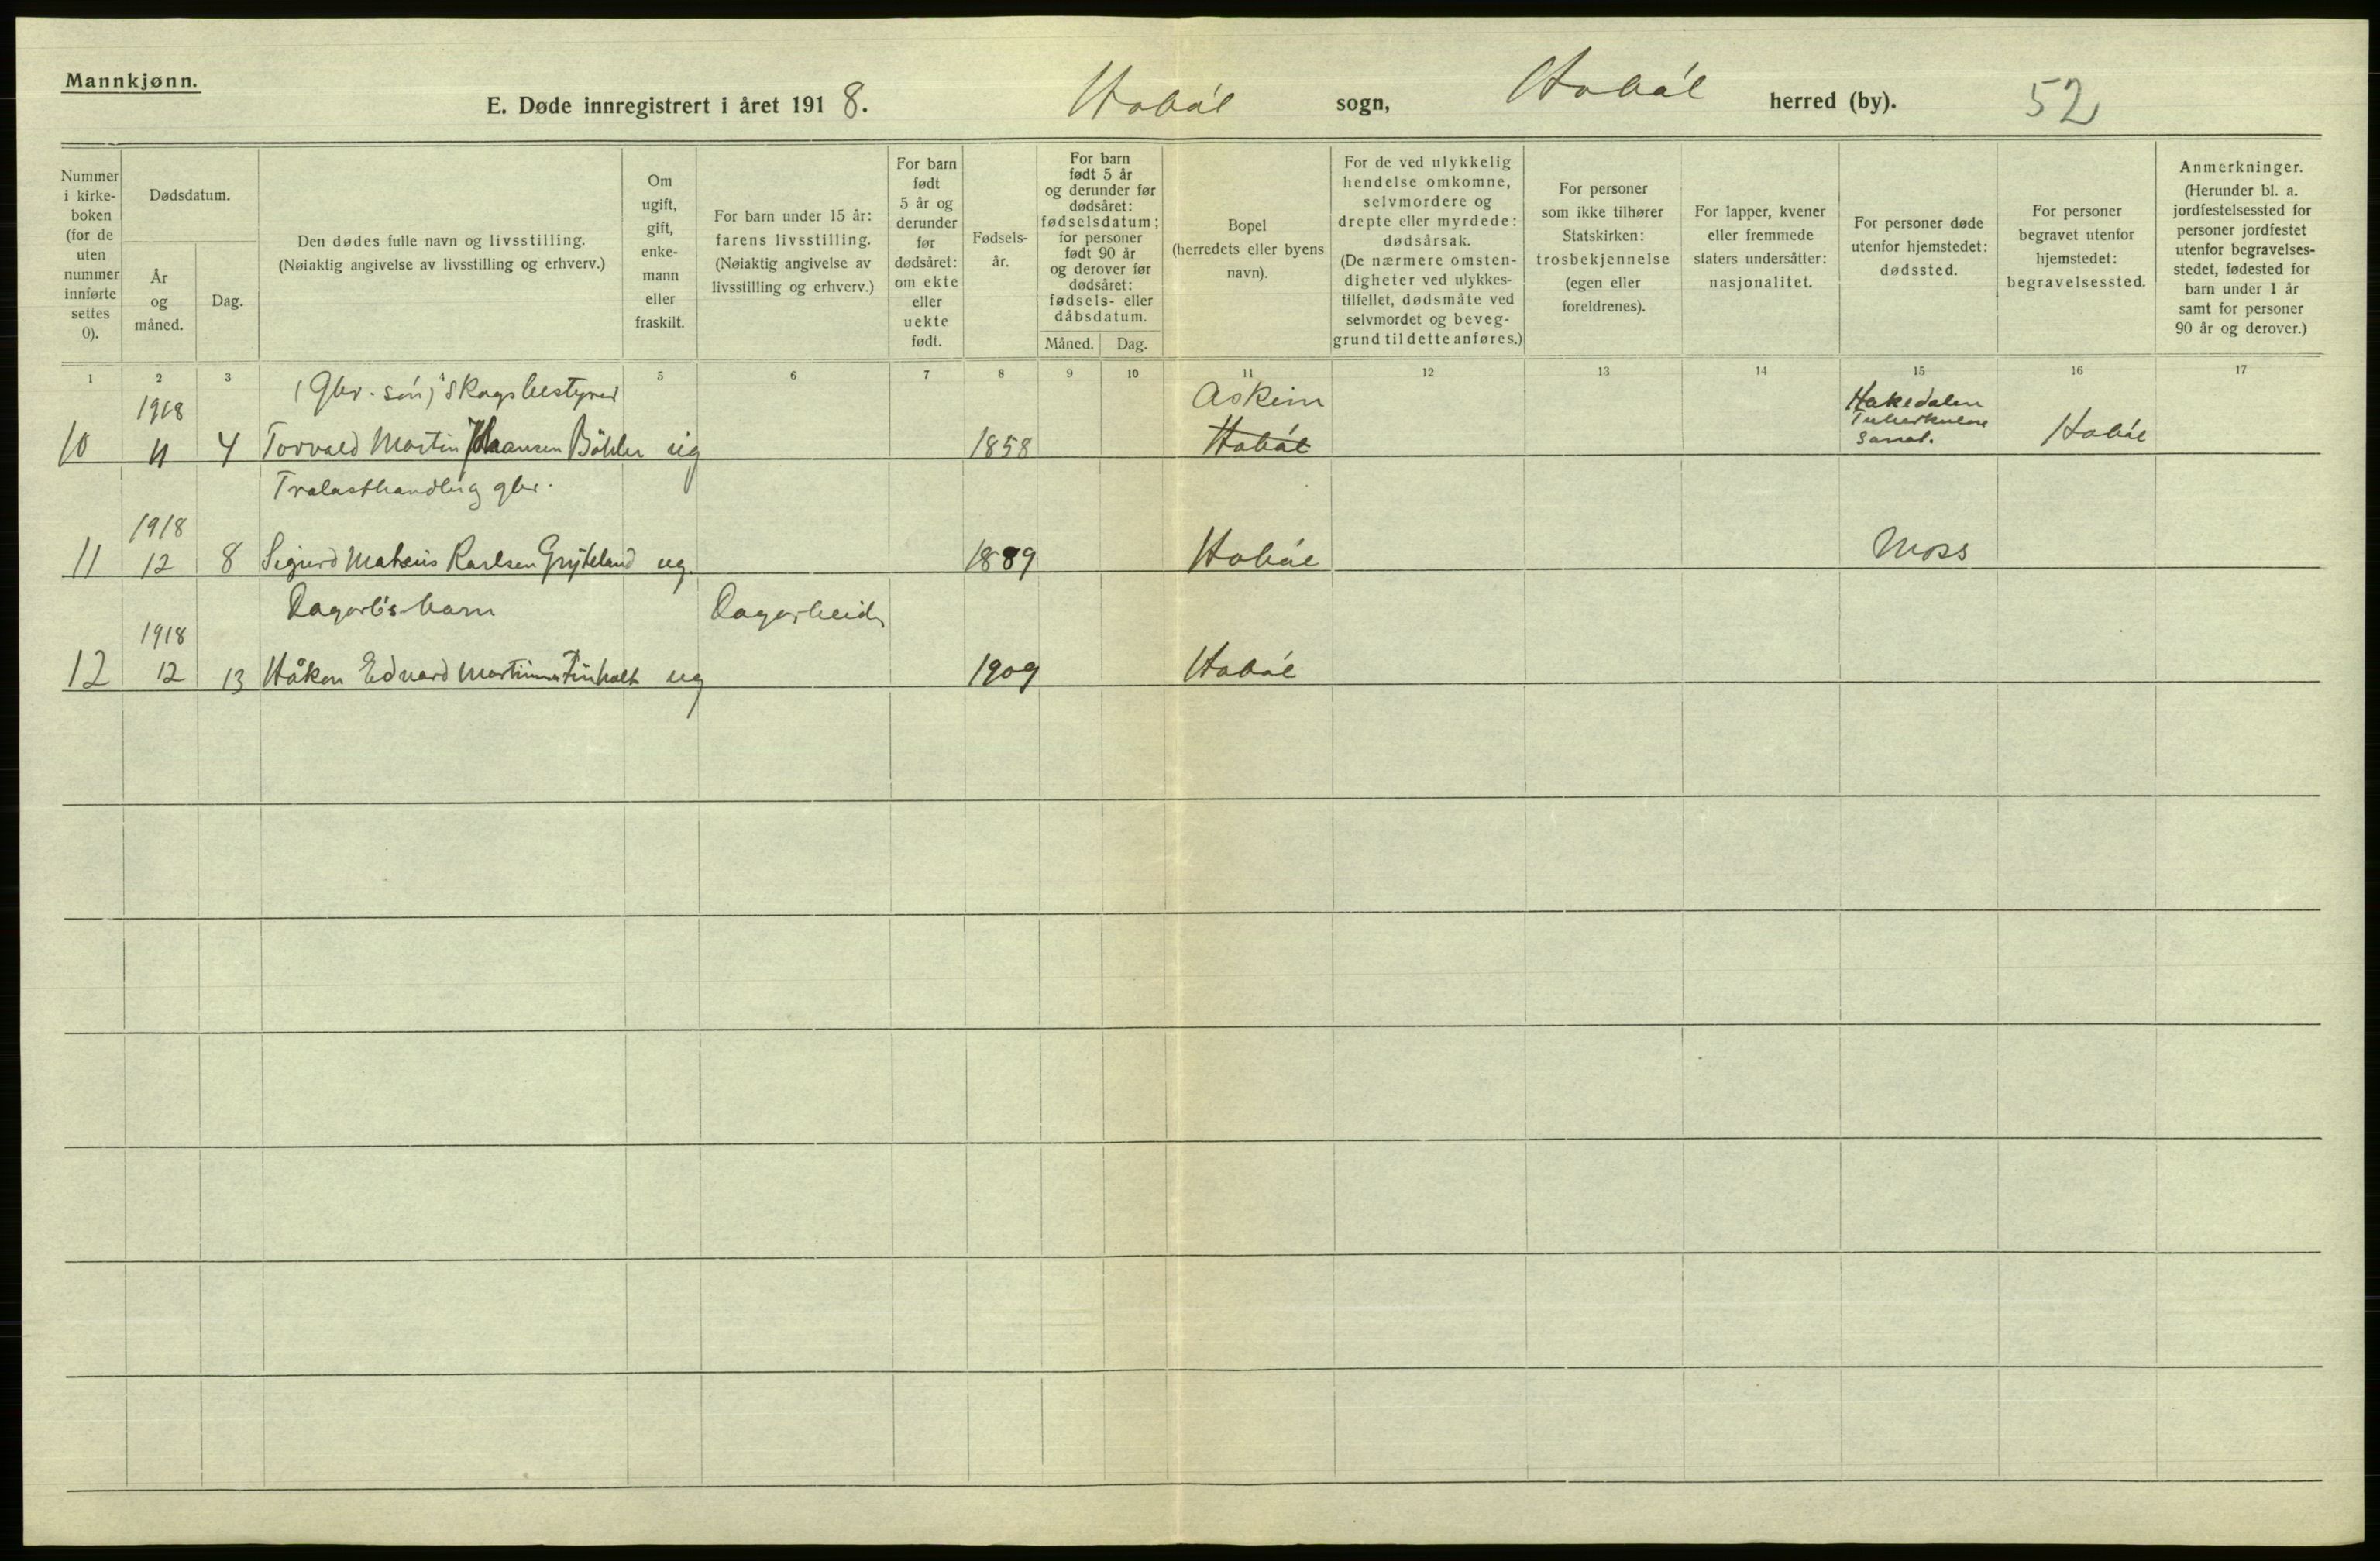 Mannkjønn.
E. Døde innregistrert i året 191 8. Hobøl sogn, Hobøl herred (by). 52
Nummer i kirke-boken (for de uten nummer innførte settes 0).
Dødsdatum.
År og måned.
Dag.
Den dødes fulle navn og livsstilling.
(Nøiaktig angivelse av livsstilling og erhverv.)
Om ugift, gift, enke-mann eller fraskilt.
For barn under 15 år: farens livsstilling. (Nøiaktig angivelse av livsstilling og erhverv.)
For barn født 5 år og derunder før dødsåret: om ekte eller uekte født.
Fødsels-år.
For barn født 5 år og derunder før dødsåret: fødselsdatum; for personer født 90 år og derover før dødsåret: fødsels- eller dåbsdatum.
Måned. Dag.
Bopel (herredets eller byens navn).
For de ved ulykkelig hendelse omkomne, selvmordere og drepte eller myrdede: dødsårsak. (De nærmere omsten-digheter ved ulykkes-tilfellet, dødsmåte ved selvmordet og beveg-grund til dette anføres.)
For personer som ikke tilhører Statskirken: trosbekjennelse (egen eller foreldrenes).
For lapper, kvener eller fremmede staters undersåtter: nasjonalitet.
For personer døde utenfor hjemstedet: dødssted.
For personer begravet utenfor hjemstedet: begravelsessted.
Anmerkninger. (Herunder bl. a. jordfestelsessted for personer jordfestet utenfor begravelses-stedet, fødested for barn under 1 år samt for personer 90 år og derover.)
1 2 3 4 5 6 7 8 9 10 11 12 13 14 15 16 17
1918 (Gbr. søn) Skogsbestyrer Askim Hakedalen
Tuberkulose
10 11 4 Torvald Martin Johansen Bøhler ug 1858 Hobøl Sanat. Hobøl
Tralasthandler og gbr.
1918
11 12 8 Sigurd Mateus Karlsen Gryteland ug. 1889 Hobøl Moss
Dagarb's barn Dagarbeider
1918
12 12 13 Håkon Edvard ug 1909 Hobøl